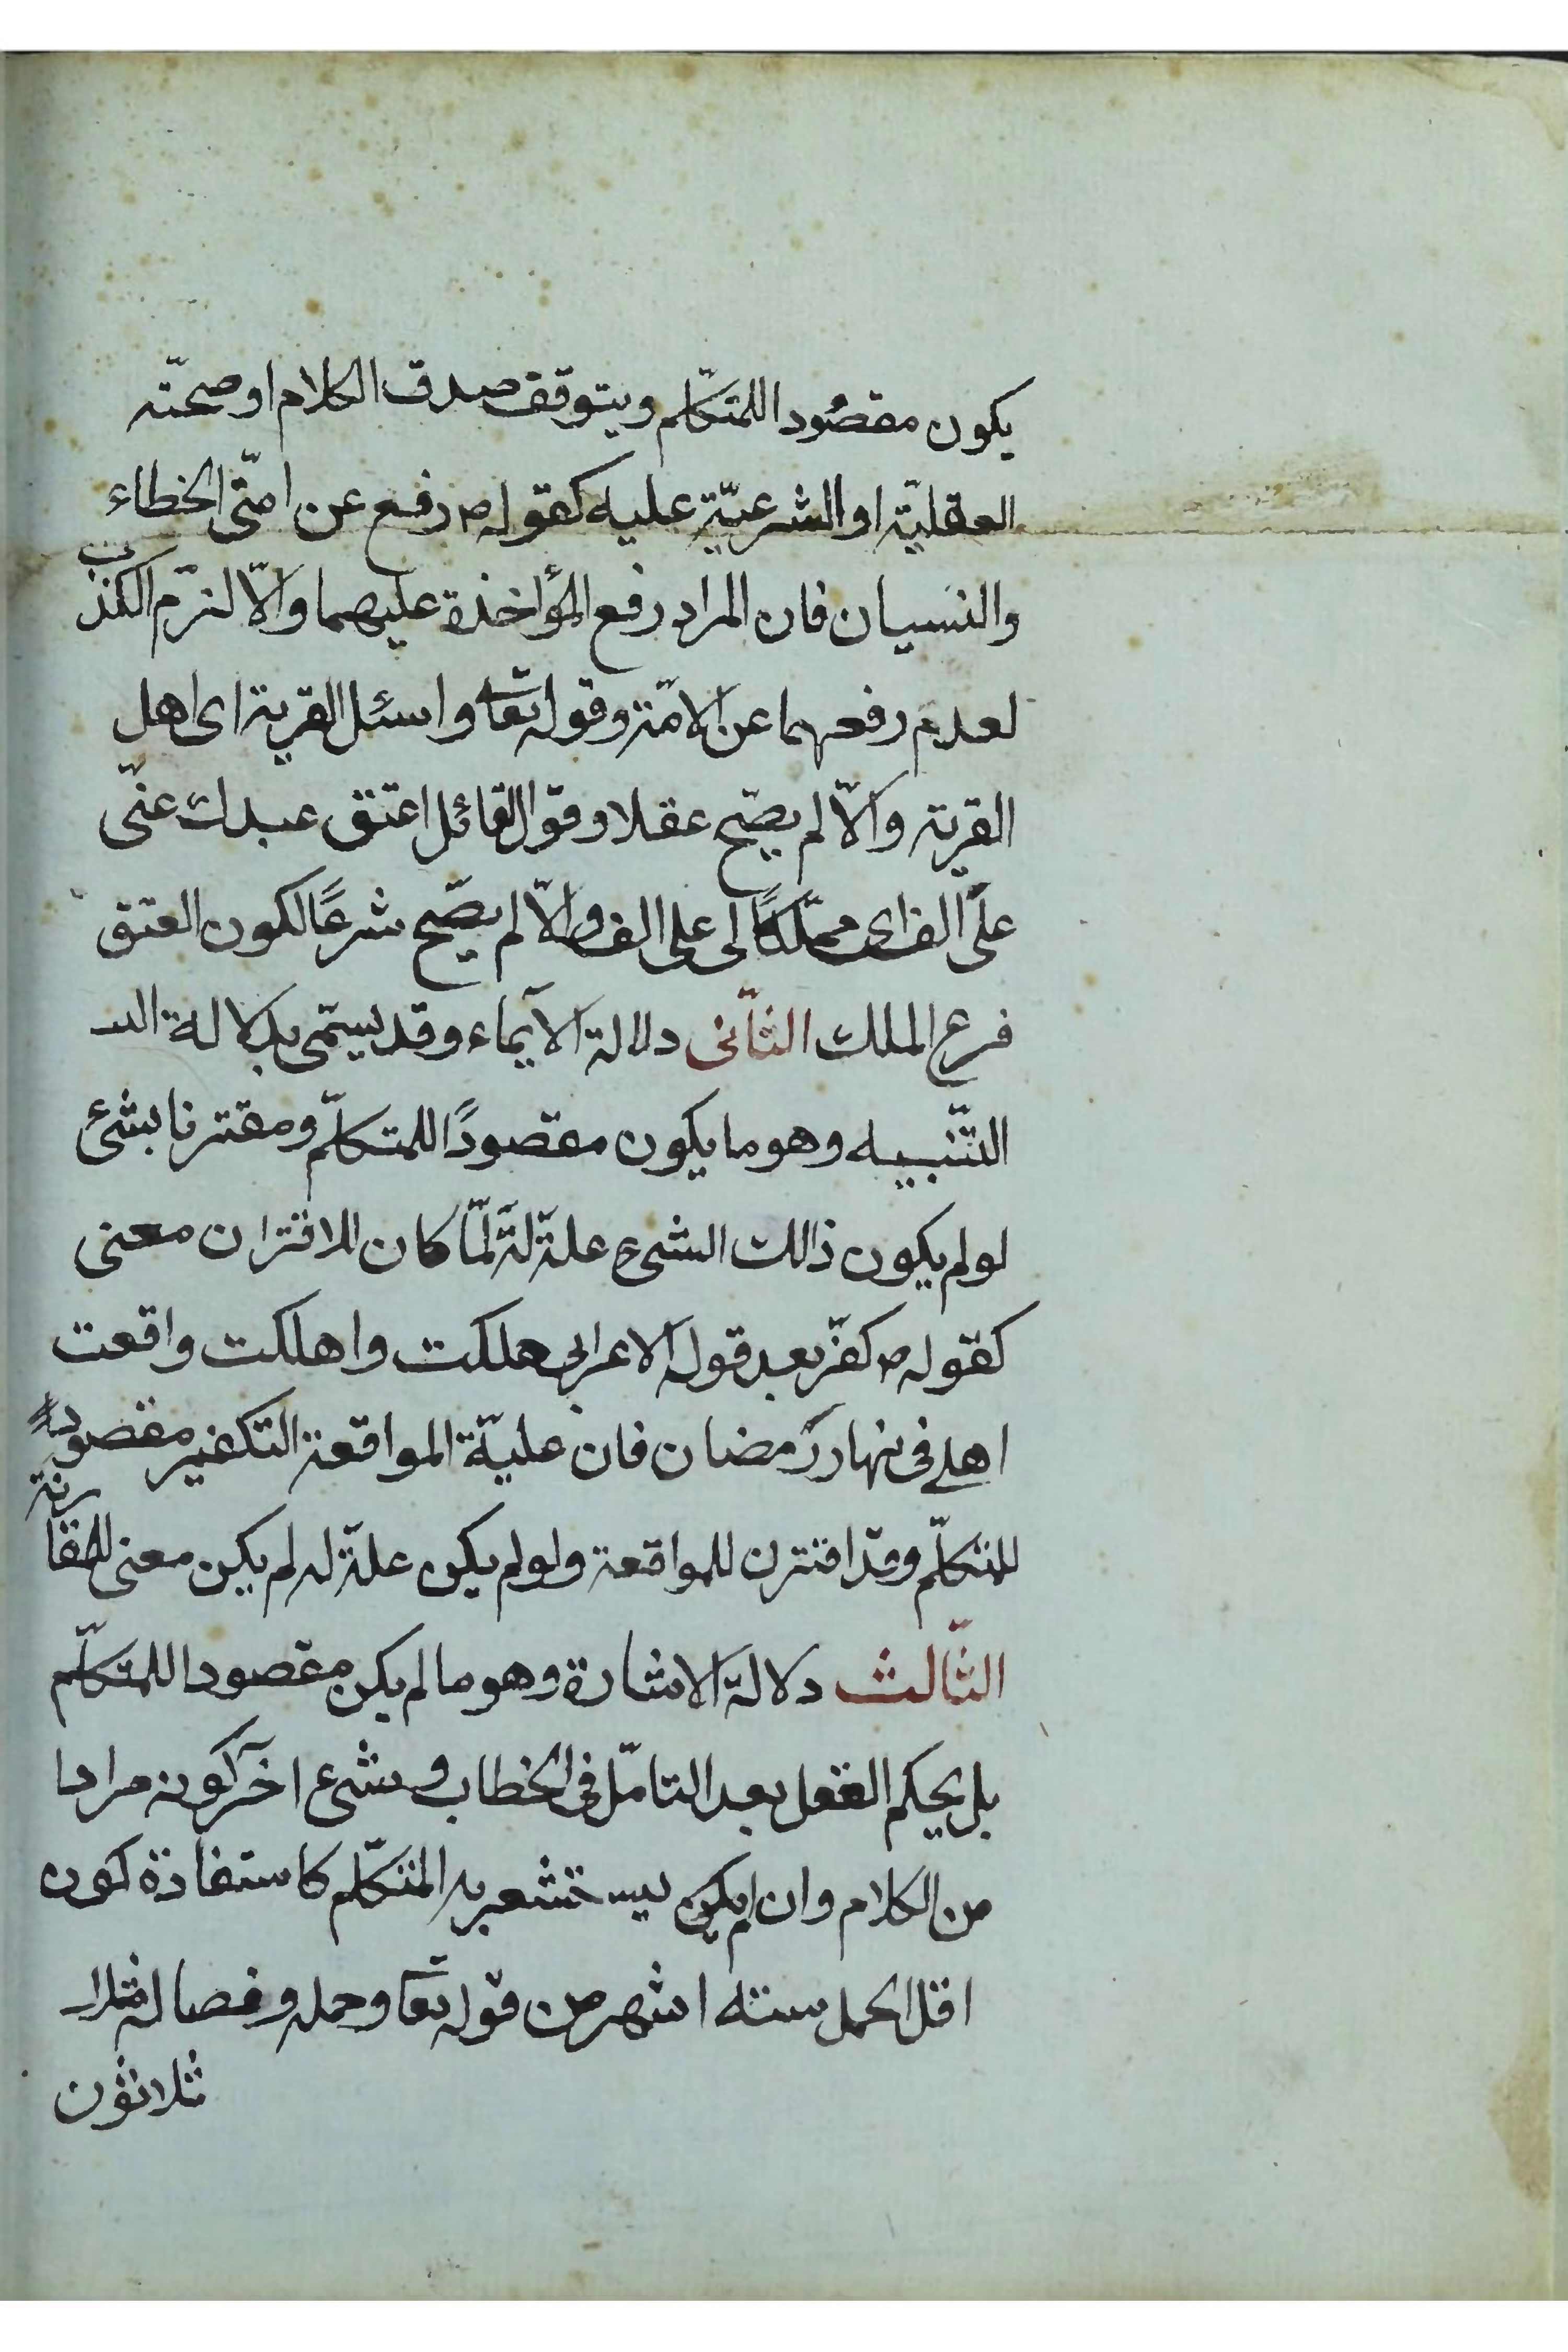 يكون مقصُودا للمتكلّم ويتوقف صدق الكلام او صحّته
العقليّة او الشرعيّة عليه كقوله ص رفع عن امّتى الخطاء
والنسيان فان المراد رفع المؤاخذة عليهما والّا لزم الكذب
لعدم رفعهما عن الامّة وقوله تعا واسئل القرية اى اهل
القرية والّا لم يصّح عقلا وقول القائل اعتق عبدك عنّى
علىّ الف اى مملّكاً لى على الف والّا لم يصّح شرعًا لكون العتق
فرع الملك الثّانى دلالة الايماء وقد يسمّى بدلالة الت
التّنبيه وهو ما يكون مقصودًا للمتكلّم ومقترنا بشئ
لو لم يكون ذالك الشئ علّة له لمّا كان للاقتران معنى
كقوله ص كفّر بعد قوله الاعرابى هلكت واهلكت واقعت
اهلى فى نهار رمضان فان عليّة المواقعة التكفير مقصوداً
للمتكلّم وقد اقترن للمواقعة ولو لم يكن علّة له لم يكن معنى للمقارنة
الثّالث دلالة الاشارة وهو ما لم يكن مقصودا للمتكلّم
بل يحكم العقل بعد التامّل فى الخطاب وبشئ اخر كونه مرادا
من الكلام وان لم يكن يستشعر به المتكلّم كاستفادة كون
اقل الحمل ستة اشهر من قوله تعا وحمله وفصاله ثلا
ثلاثون